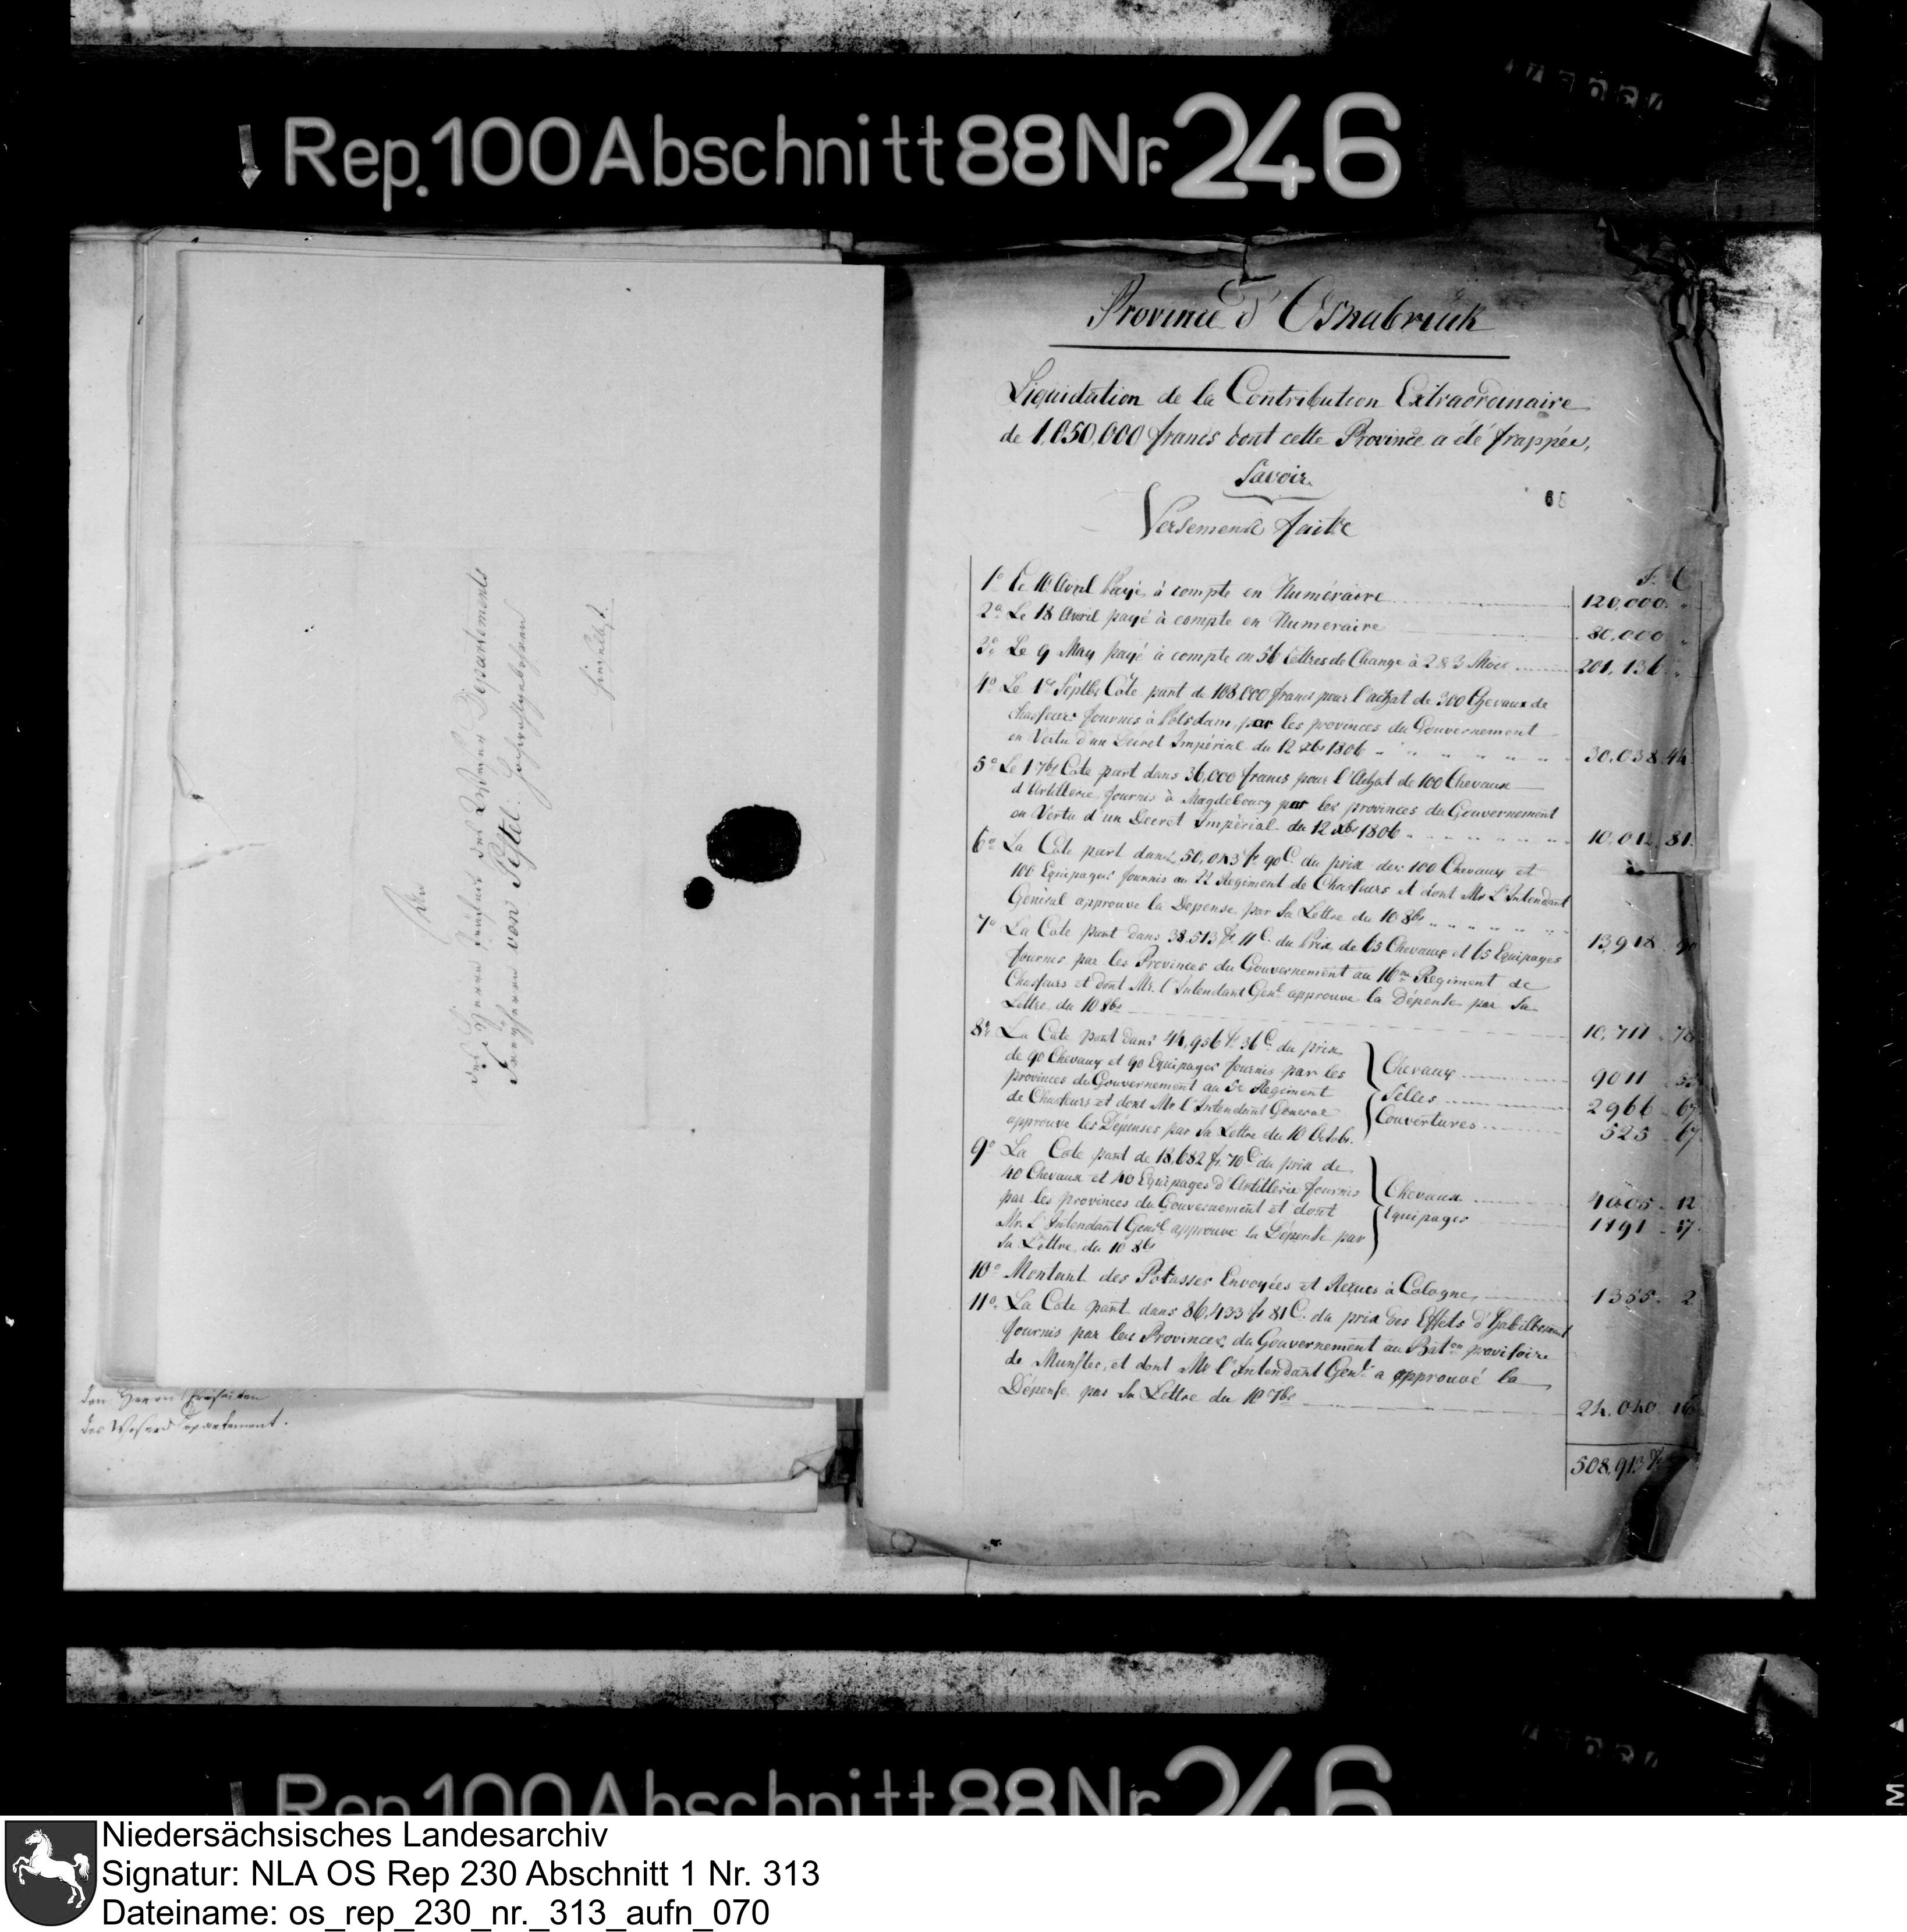 Rep. 100 Abschnitt 88 Nr. 246
An
des Herrn des Weser Departements
Freyherrn von Pestel: Hochwohlgebohren
den Herrn
des Weser Departement.
Province d'Osnabruck
Liquidation de la Contribution Extraordinaire
de 1,050,000 francs dont cette Province a été frappée,
Savoir
68
Versements faits
F. C
1° Le 10 Avril Payé à compte en Numéraire 120,000 "
2° Le 18 Avril payé à compte en Numeraire 80,000 "
3° Le 9 May payé à compte en 56 Lettres de Change à 2 & 3 Mois 201,136 "
4° Le 1er Septbr Cote part de 108,000 francs pour l'achat de 300 Chevaux de
chasseurs fournis à Potsdam, par les provinces du Gouvernement
en Vertu d'un Decret Impérial du 12 xbr 1806 30,038 44
5° Le 1 7br Cote part dans 36,000 francs pour l'Achat de 100 Chevaux
d'Artillerie fournis à Magdebourg par les provinces du Gouvernement
en Vertu d'un Decret Impérial du 12 xbr 1806 10,012 81
6° La Cote part dans 50,043 fr 90 C. du prix des 100 Chevaux et
100 Equipages fournis au 22 Regiment de Chasseurs et dont Mr L'Intendant
Général approuve la Depense par sa Lettre du 10 8br 13,918 90
7° La Cote part dans 38,513 fr 11 C. du Prix de 65 Chevaux et 65 Equipages
fournis par les Provinces du Gouvernement au 16me Regiment de
Chasseurs et dont Mr. l'Intendant Genl. approuve la Dépense par sa
Lettre du 10 8br 10,711 78
8° La Cote part dans 44,956 fr 36 C. du prix
de 90 Chevaux et 90 Equipages fournis par les
provinces du Gouvernement au 5e Regiment
de Chasseurs et dont Mr l'Intendant General
approuve les Dépenses par sa Lettre du 10 Octobr.
Chevaux 9011
Selles 2966 67
Couvertures 525 67
9° La Cote part de 18,682 fr. 70 C du prix de
40 Chevaux et 40 Equipages d'Artillerie fournis
par les provinces du Gouvernement et dont
Mr. L'Intendant Genl. approuve la Dépense par
sa Lettre du 10 8br
Chevaux 4005 12
Equipages 1191 17
10° Montant des Potasses Envoyées et Reçues à Cologne 1355 2
11° La Cote part dans 86,433 fr 81 C. du prix des Effets d'Habillement
fournis par les Provinces du Gouvernement au Baton provisoire
de Munster, et dont Mr l'Intendant Genl. a approuvé la
Dépense par sa Lettre du 10 7br 24,040 16
508,913
Rep. 100 Abschnitt 88 Nr. 246
M
Niedersächsisches Landesarchiv
Signatur: NLA OS Rep 230 Abschnitt 1 Nr. 313
Dateiname: os_rep_230_nr._313_aufn_070